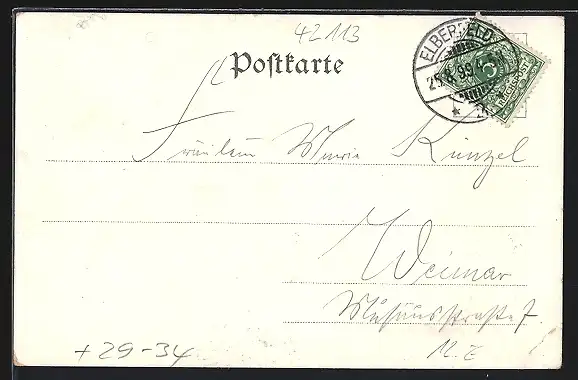 42113
Postkarte
ELBERFELD
25.4.99.4-
REICHSPOST
Fräulein Marie Künzel
Weimar
Musäusstraße 7.
+ 29-34